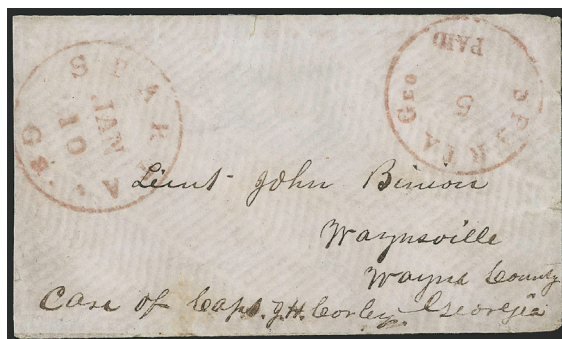 SPARTA GEO
PAID
5
SPARTA G
JAN
10
Lieut John Binion
Waynsville
Wayne County
Care of Capt. J.H. Corley. Georgia